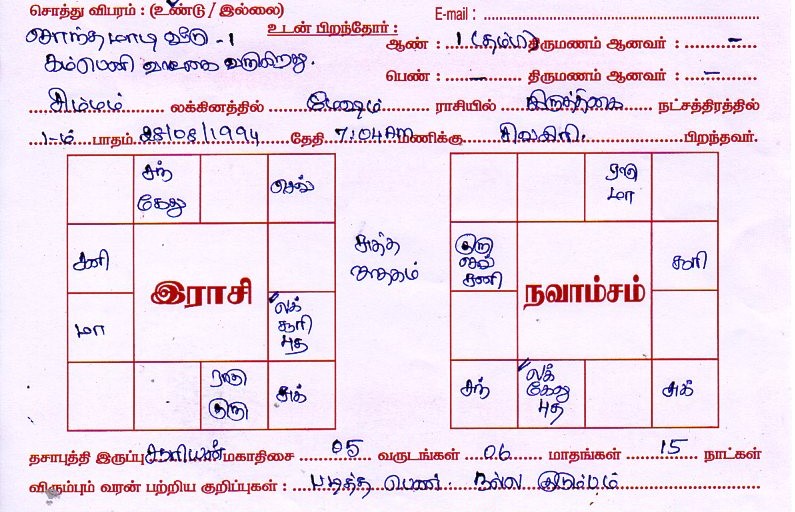 சொத்து விபரம் : (உண்டு / இல்லை)
E-mail :
சொந்த மாடி வீடு - 1
உடன் பிறந்தோர் :
கம்பெனி வாடகை வருகிறது.
ஆண் : 1 (தம்பி) திருமணம் ஆனவர் : -
பெண் : - திருமணம் ஆனவர் : -
சிம்மம் லக்கினத்தில் மேஷம் ராசியில் கிருத்திகை நட்சத்திரத்தில்
1-ம் பாதம் 28/08/1994 தேதி 7:04AM மணிக்கு சிவகிரி. பிறந்தவர்.
சந்
கேது
செவ்
சனி
இராசி
மா
லக்
சூரி
புத
ராகு
குரு
சுக்
சுத்த
ஜாதகம்
ராகு
மா
குரு
செவ்
சனி
சூரி
நவாம்சம்
சந்
லக்
கேது
புத
சுக்
தசாபுத்தி இருப்பு சூரியன் மகாதிசை 05 வருடங்கள் 06 மாதங்கள் 15 நாட்கள்
விரும்பும் வரன் பற்றிய குறிப்புகள் : படித்த பெண். நல்ல குடும்பம்